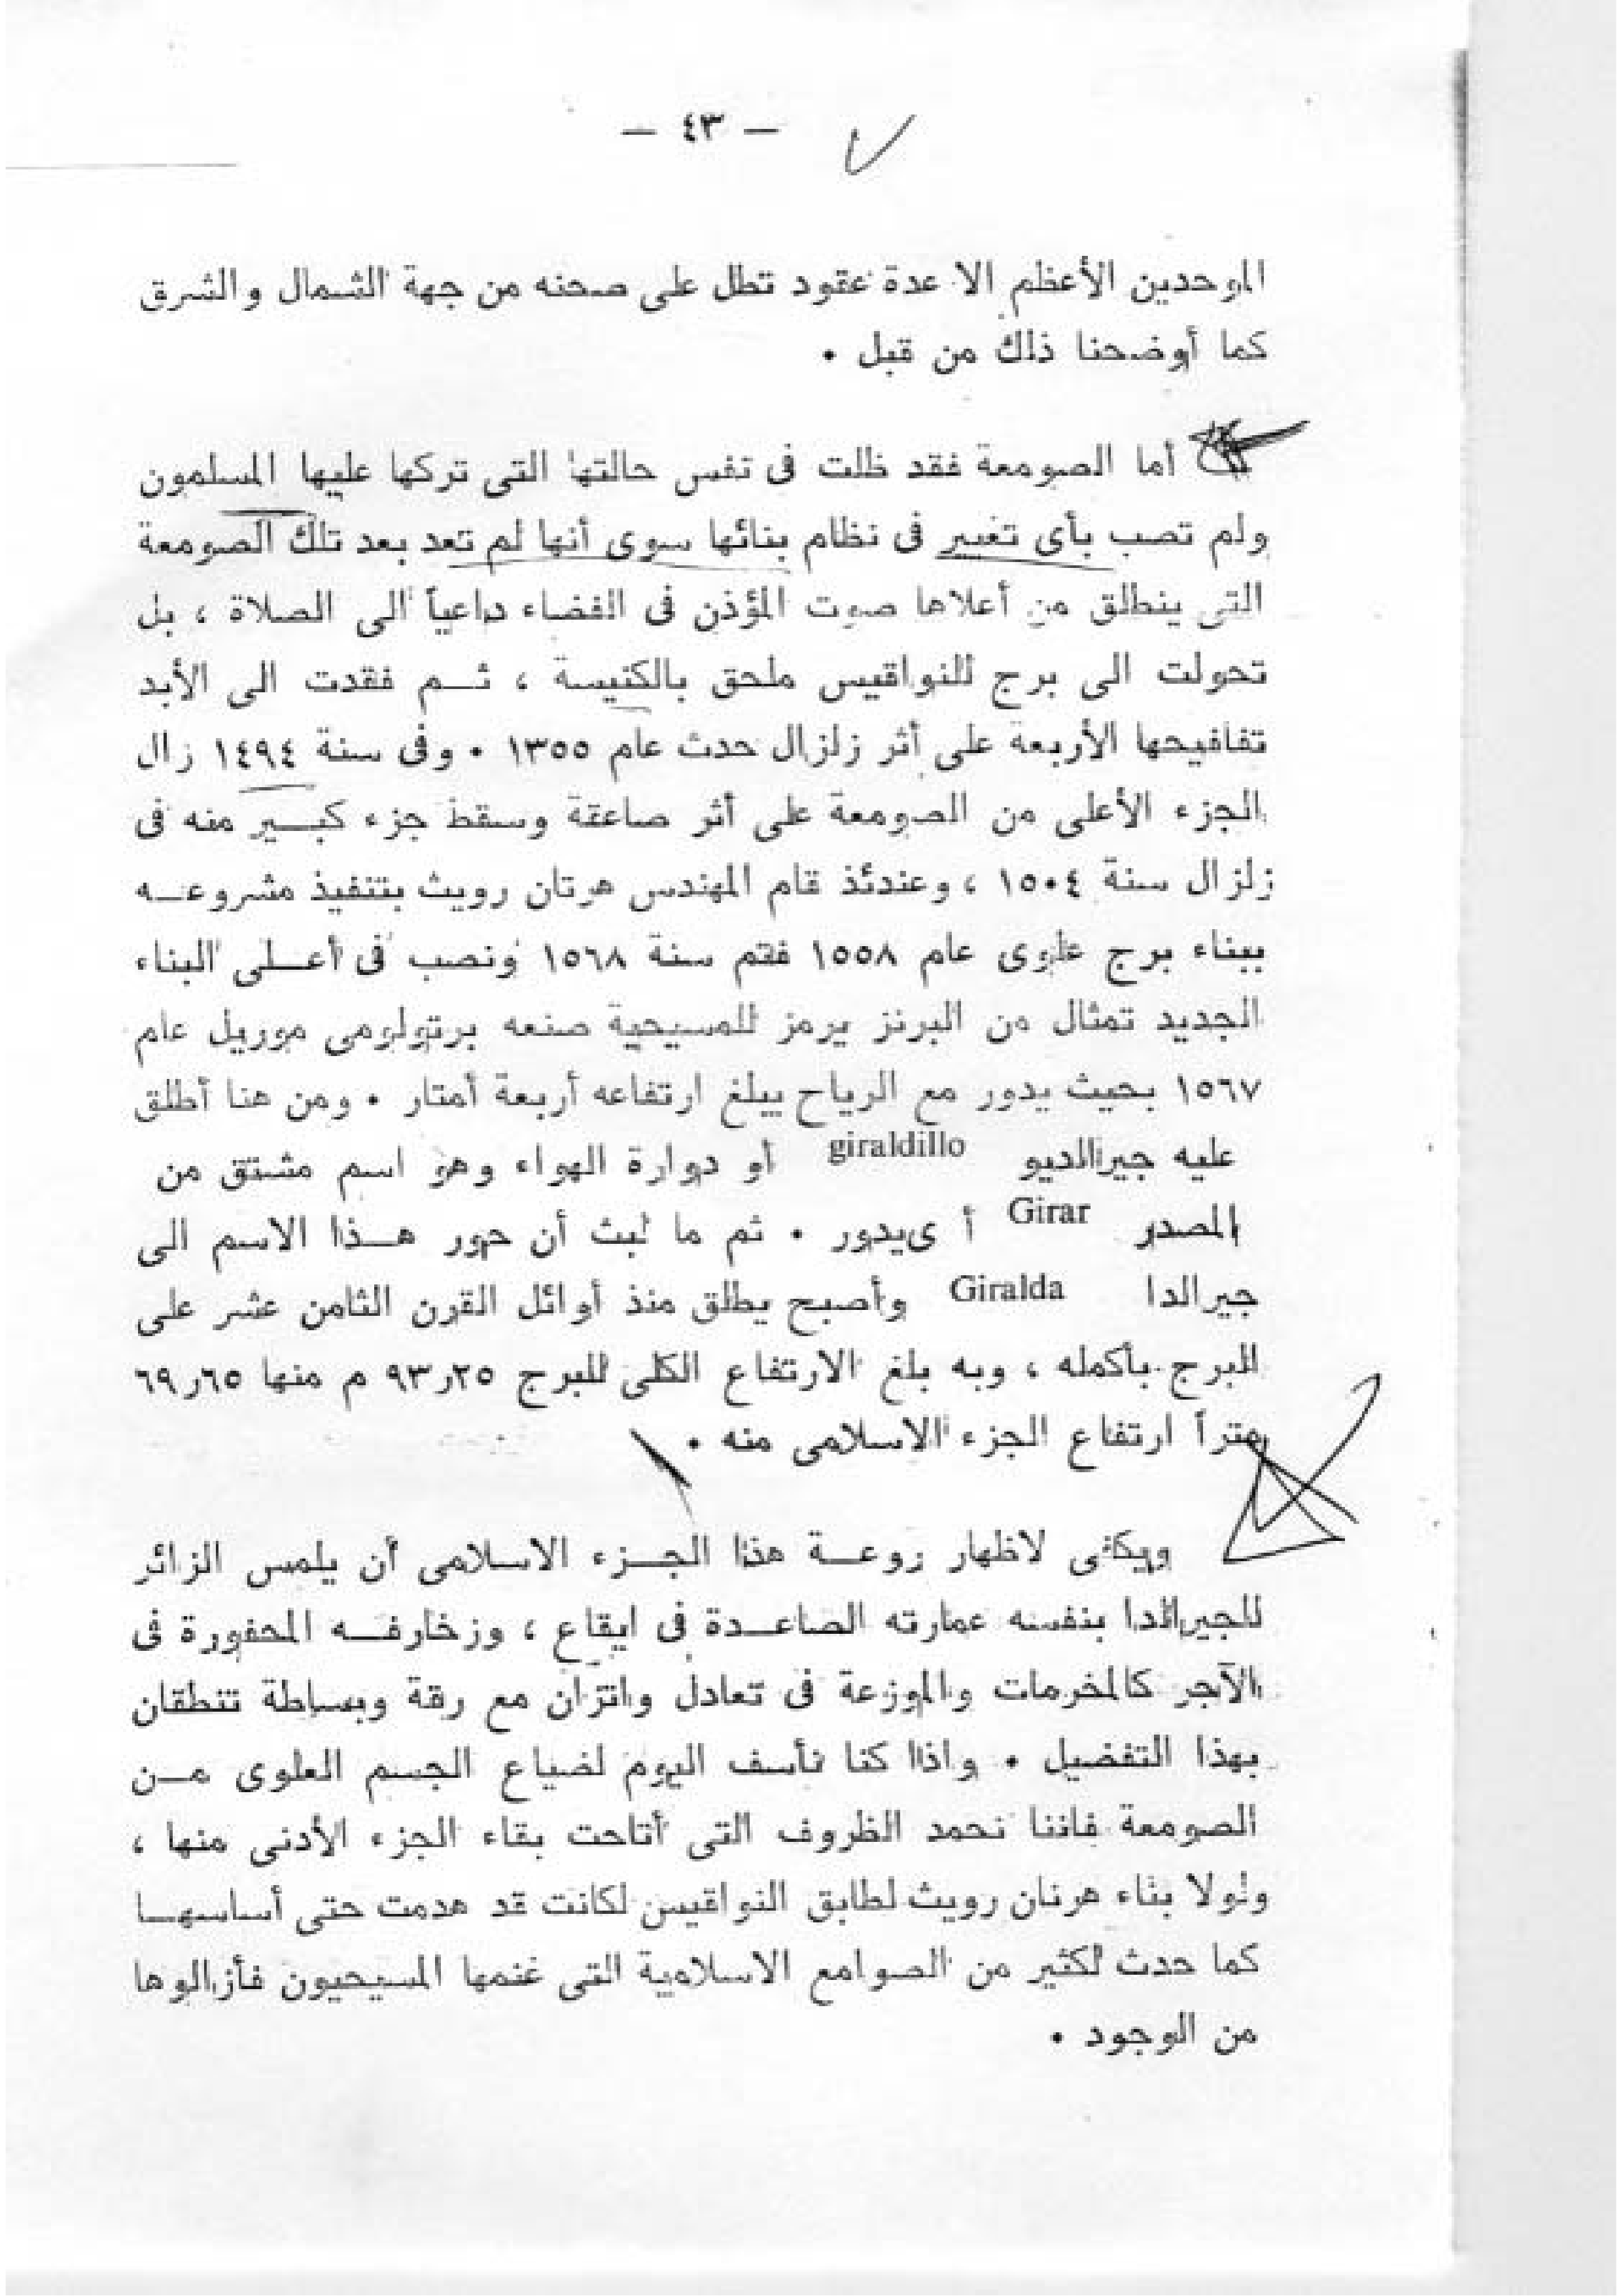 — ٤٣ —
الموحدين الأعظم الا عدة عقود تطل على صحنه من جهة الشمال والشرق
كما أوضحنا ذلك من قبل •
أما الصومعة فقد ظلت فى نفس حالتها التى تركها عليها المسلمون
ولم تصب بأى تغيير فى نظام بنائها سوى أنها لم تعد بعد تلك الصومعة
التى ينطلق من أعلاها صوت المؤذن فى الفضاء داعياً الى الصلاة ، بل
تحولت الى برج للنواقيس ملحق بالكنيسة ، ثـم فقدت الى الأبد
تفافيحها الأربعة على أثر زلزال حدث عام ١٣٥٥ • وفى سنة ١٤٩٤ زال
الجزء الأعلى من الصومعة على أثر صاعقة وسقط جزء كبـير منه فى
زلزال سنة ١٥٠٤ ، وعندئذ قام المهندس هرتان رويث بتنفيذ مشروعـه
ببناء برج علوى عام ١٥٥٨ فتم سنة ١٥٦٨ ونصب فى أعـلى البناء
الجديد تمثال من البرنز يرمز للمسيحية صنعه برتولومى موريل عام
١٥٦٧ بحيث يدور مع الرياح يبلغ ارتفاعه أربعة أمتار • ومن هنا أطلق
عليه جيرالديو giraldillo أو دوارة الهواء وهو اسم مشتق من
المصدر Girar أ ىيدور • ثم ما لبث أن حور هـذا الاسم الى
جيرالدا Giralda وأصبح يطلق منذ أوائل القرن الثامن عشر على
البرج بأكمله ، وبه بلغ الارتفاع الكلى للبرج ٢٥ر٩٣ م منها ٦٥ر٦٩
متراً ارتفاع الجزء الاسلامى منه •
ويكفى لاظهار روعـة هذا الجـزء الاسلامى أن يلمس الزائر
للجيرالدا بنفسه عمارته الصاعـدة فى ايقاع ، وزخارفـه المحفورة فى
الآجر كالمخرمات والموزعة فى تعادل واتزان مع رقة وبساطة تنطقان
بهذا التفضيل • واذا كنا نأسف اليوم لضياع الجسم العلوى مـن
الصومعة فاننا نحمد الظروف التى أتاحت بقاء الجزء الأدنى منها ،
ولولا بناء هرنان رويث لطابق النواقيس لكانت قد هدمت حتى أساسهـا
كما حدث لكثير من الصوامع الاسلامية التى غنمها المسيحيون فأزالوها
من الوجود •